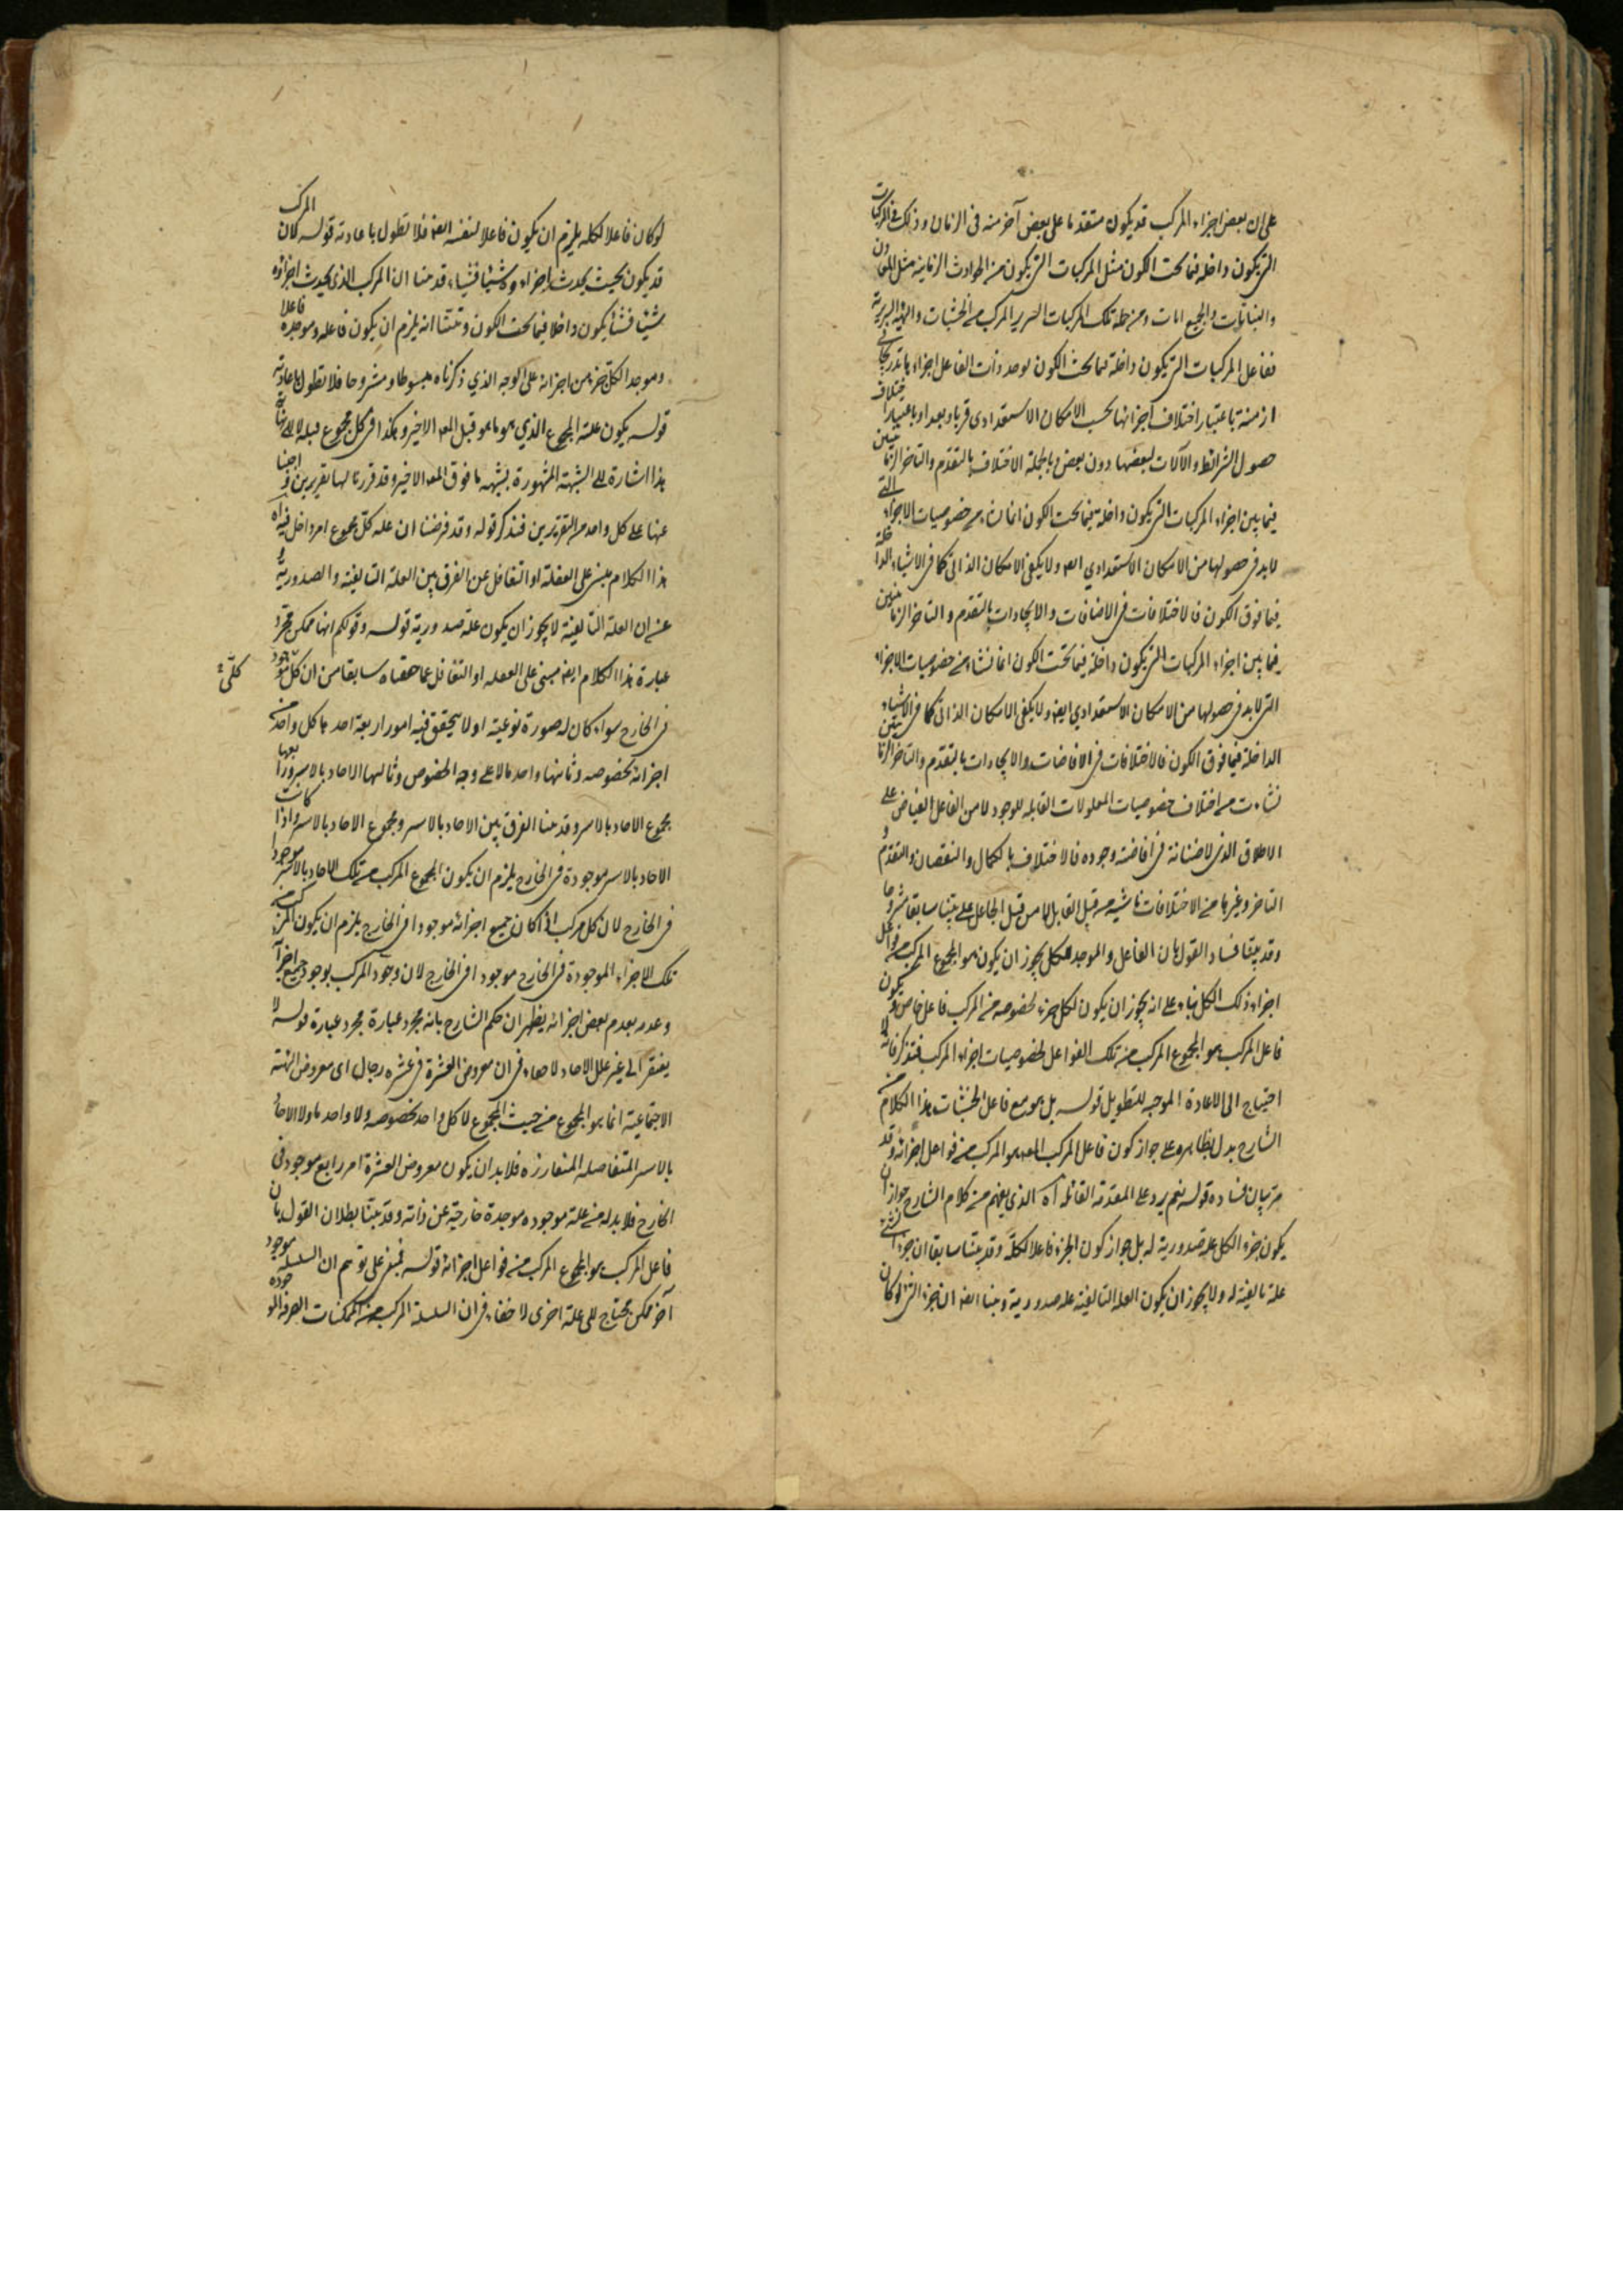 على ان بعض اجزاء المركب قد يكون متقدما على بعض آخر منه فى الزمان وذلك فى المركبات
التى يكون داخله فيما تحت الكون مثل المركبات التى يكون من الحوادث الزمانية مثل المعادن
والنباتات ومن جملة تلك المركبات السرير المركب من الخشبات والهيئة السريرية
ففاعل المركبات التى يكون داخلة فيما تحت الكون يوجد ذات الفاعل اجزاءها تدريجا فى
ازمنة باعتبار اختلاف اجزائها بحسب الامكان الاستعدادى قربا وبعدا وباعتبار اختلاف
حصول الشرائط والآلات لبعضها دون بعض وبالجملة الاختلاف بالتقدم والتاخر الزمانيين
فيما بين اجزاء المركبات التى يكون داخلة فيما تحت الكون انما نشاء من خصوصيات الاجزاء التى
لا بد فى حصولها من الامكان الاستعدادي ايضه ولا يكفى الامكان الذاتى كما فى الاشياء الداخلة
فيما فوق الكون فالاختلافات فى الاضافات والايجادات بالتقدم والتاخر الزمانيين
فيما بين اجزاء المركبات التى يكون داخلة فيما تحت الكون انما نشاء من خصوصيات الاجزاء
التى لا بد فى حصولها من الامكان الاستعدادي ايضه ولا يكفى الامكان الذاتى كما فى الاشياء
الداخلة فيما فوق الكون فالاختلافات فى الافاضات والايجادات بالتقدم والتاخر الزمانيين
نشاءت من اختلاف خصوصيات المعلولات القابله للوجود لا من الفاعل الفياض على
الاطلاق الذى لا ضنانة فى افاضته وجوده فالاختلاف بالكمال والنقصان والتقدم و
التاخر وغيرها من الاختلافات ناشيه من قبل القابل لا من قبل الجاعل على ما بينا سابقا مشروحا
وقد بينا فساد القول بان الفاعل والموجد للكل يجوز ان يكون هو المجموع المركب من فواعل
اجزاء ذلك الكل بناء على انه يجوز ان يكون لكل جزء بخصوصه من المركب فاعل خاص ويكون
فاعل المركب هو المجموع المركب من تلك الفواعل لخصوصيات اجزاء المركب فتذكر فانه لا
احتياج الى الاعادة الموجبه للتطويل قولــه بل هو مع فاعل الخشبات هذا الكلام من
الشارح يدل بظاهره على جواز كون فاعل المركب هو المركب من فواعل اجزائه وقد
مر بيان فساده قوله نعم يرد على المقدمة القائله آه الذي يفهم من كلام الشارح جواز ان
يكون جزء الكل علة صدورية له بل جواز كون الجزء فاعلا لكلّه وقد بينا سابقا ان جزء الشئ
علة تاليفية له ولا يجوز ان يكون العله التاليفيه عله صدورية وبينا ايضه ان جزء الشئ لو كان
لو كان فاعلا لكله يلزم ان يكون فاعلا لنفسه ايضه فلا نطول باعادته قولــه كان المركب
قد يكون بحيث يحدث اجزاءه شيئا فشياء قد بينا ان المركب الذى يحدث اجزائه
شيئا فشئا يكون داخلا فيما تحت الكون وبينا انه يلزم ان يكون فاعله وموجده فاعلا
وموجد الكل جزء من اجزائه على الوجه الذي ذكرناه مبسوطا ومشروحا فلا نطول باعادته
قولــه يكون علة المجموع الذي هو ما هو قبل المعه الاخير وهكذا فى كل مجموع قبله لا الى نهاية
هذا اشارة الى الشبهة المشهورة بشبهه ما فوق المعه الاخير وقد قررنا لها تقريرين واجبنا
عنها على كل واحد من التقريرين فتذكر قوله وقد فرضنا ان علة كل مجموع امر داخل فيه آه
هذا الكلام مبنى على الغفلة او التغافل عن الفرق بين العلة التاليفية والصدورية و
على ان العلة التاليفية لا يجوز ان يكون علة صدورية قولــه وقولكم انها ممكن مجرد
عبارة هذا الكلام ايضه مبنى على الغفله او التغافل عما حققناه سابقا من ان كل موجود
كلّى
فى الخارج سواء كان له صورة نوعيّة او لا يتحقق فيه امور اربعة احدها كل واحد من
اجزائه بخصوصه وثانيها واحد ما لا على وجه الخصوص وثالثها الاحاد بالاسر ورابعها
مجموع الاحاد بالاسر وقد بينا الفرق بين الاحاد بالاسر ومجموع الاحاد بالاسر واذا كانت
الاحاد بالاسر موجودة فى الخارج يلزم ان يكون المجموع المركب من تلك الاحاد بالاسر موجودا
فى الخارج لان كل مركب اذا كان جميع اجزائه موجودا فى الخارج يلزم ان يكون المركب من
تلك الاجزاء الموجودة فى الخارج موجودا فى الخارج لان وجود المركب بوجود جميع اجزائه
وعدمه بعدم بعض اجزائه يظهر ان حكم الشارح بانه مجرد عبارة مجرد عبارة قولــه لا
يفتقر الى غير علل الاحاد لا خفاء فى ان معروض العشرة فى عشره رجال اى معروض الهيئة
الاجتماعية انما هو المجموع من حيث المجموع لا كل واحد بخصوصه ولا واحد ما ولا الاحاد
بالاسر المتفاصله المتغايرة فلا بد ان يكون معروض العشرة امر رابع موجود فى
الخارج فلا بد له من علة موجوده موجدة خارجية عن ذاته وقد بينا بطلان القول بان
فاعل المركب هو المجموع المركب من فواعل اجزائه قولــه فمبنى على توهم ان السلسله موجود
آخر ممكن يحتاج الى علة اخرى لا خفاء فى ان السلسلة المركبه من الممكنات الصرفه الموجوده